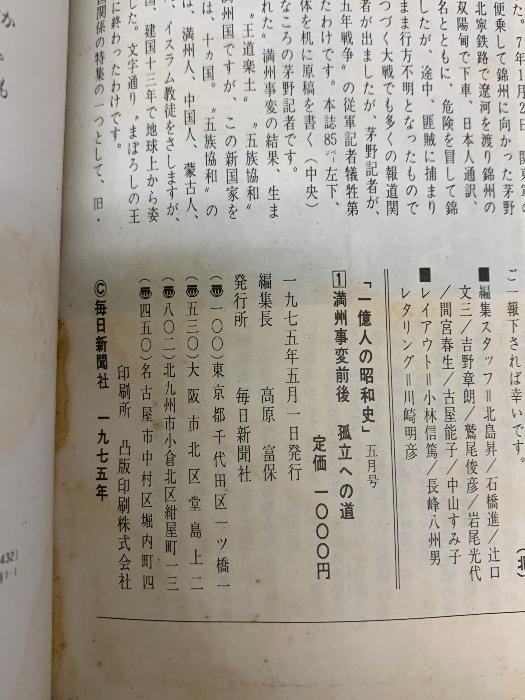 た。7年1月
便乗して錦州に向かった茅野
北寧鉄路で遼河を渡り錦州の
双陽甸で下車、日本人通訳、
名とともに、危険を冒して錦
したが、途中、匪賊に捕まり
まま行方不明となったもので
つづく大戦でも多くの報道関
者が出ましたが、茅野記者が、
五年戦争〟の従軍記者犠牲第
たわけです。本誌85㌻左下、
体を机に原稿を書く（中央）
なころの茅野記者です。
〝王道楽土〟〝五族協和〟
れた〟満州事変の結果、生ま
満州国ですが、この新国家を
は、十ヵ国。〝五族協和〟の
は、満州人、中国人、蒙古人、
、イスラム教徒をさしますが、
国、建国十三年で地球上から姿
した。文字通り〝まぼろしの王
に終わったわけです。
国関係の特集の一つとして、旧・
ご一報下されば幸いです。
（北
■編集スタッフ＝北島昇／石橋進／辻口
文三／吉野章朗／鷲尾俊彦／岩尾光代
／間宮春生／古屋能子／中山すみ子
■レイアウト＝小林信篤／長峰八州男
レタリング＝川崎明彦
「一億人の昭和史」五月号
1満州事変前後 孤立への道
定価 一〇〇〇円
一九七五年五月一日発行
編集長 高原 富保
発行所 毎日新聞社
（〒一〇〇）東京都千代田区一ツ橋一
（〒五三〇）大阪市北区堂島上二
（〒八〇二）北九州市小倉北区紺屋町一三
（〒四五〇）名古屋市中村区堀内町四
印刷所 凸版印刷株式会社
©毎日新聞社 一九七五年